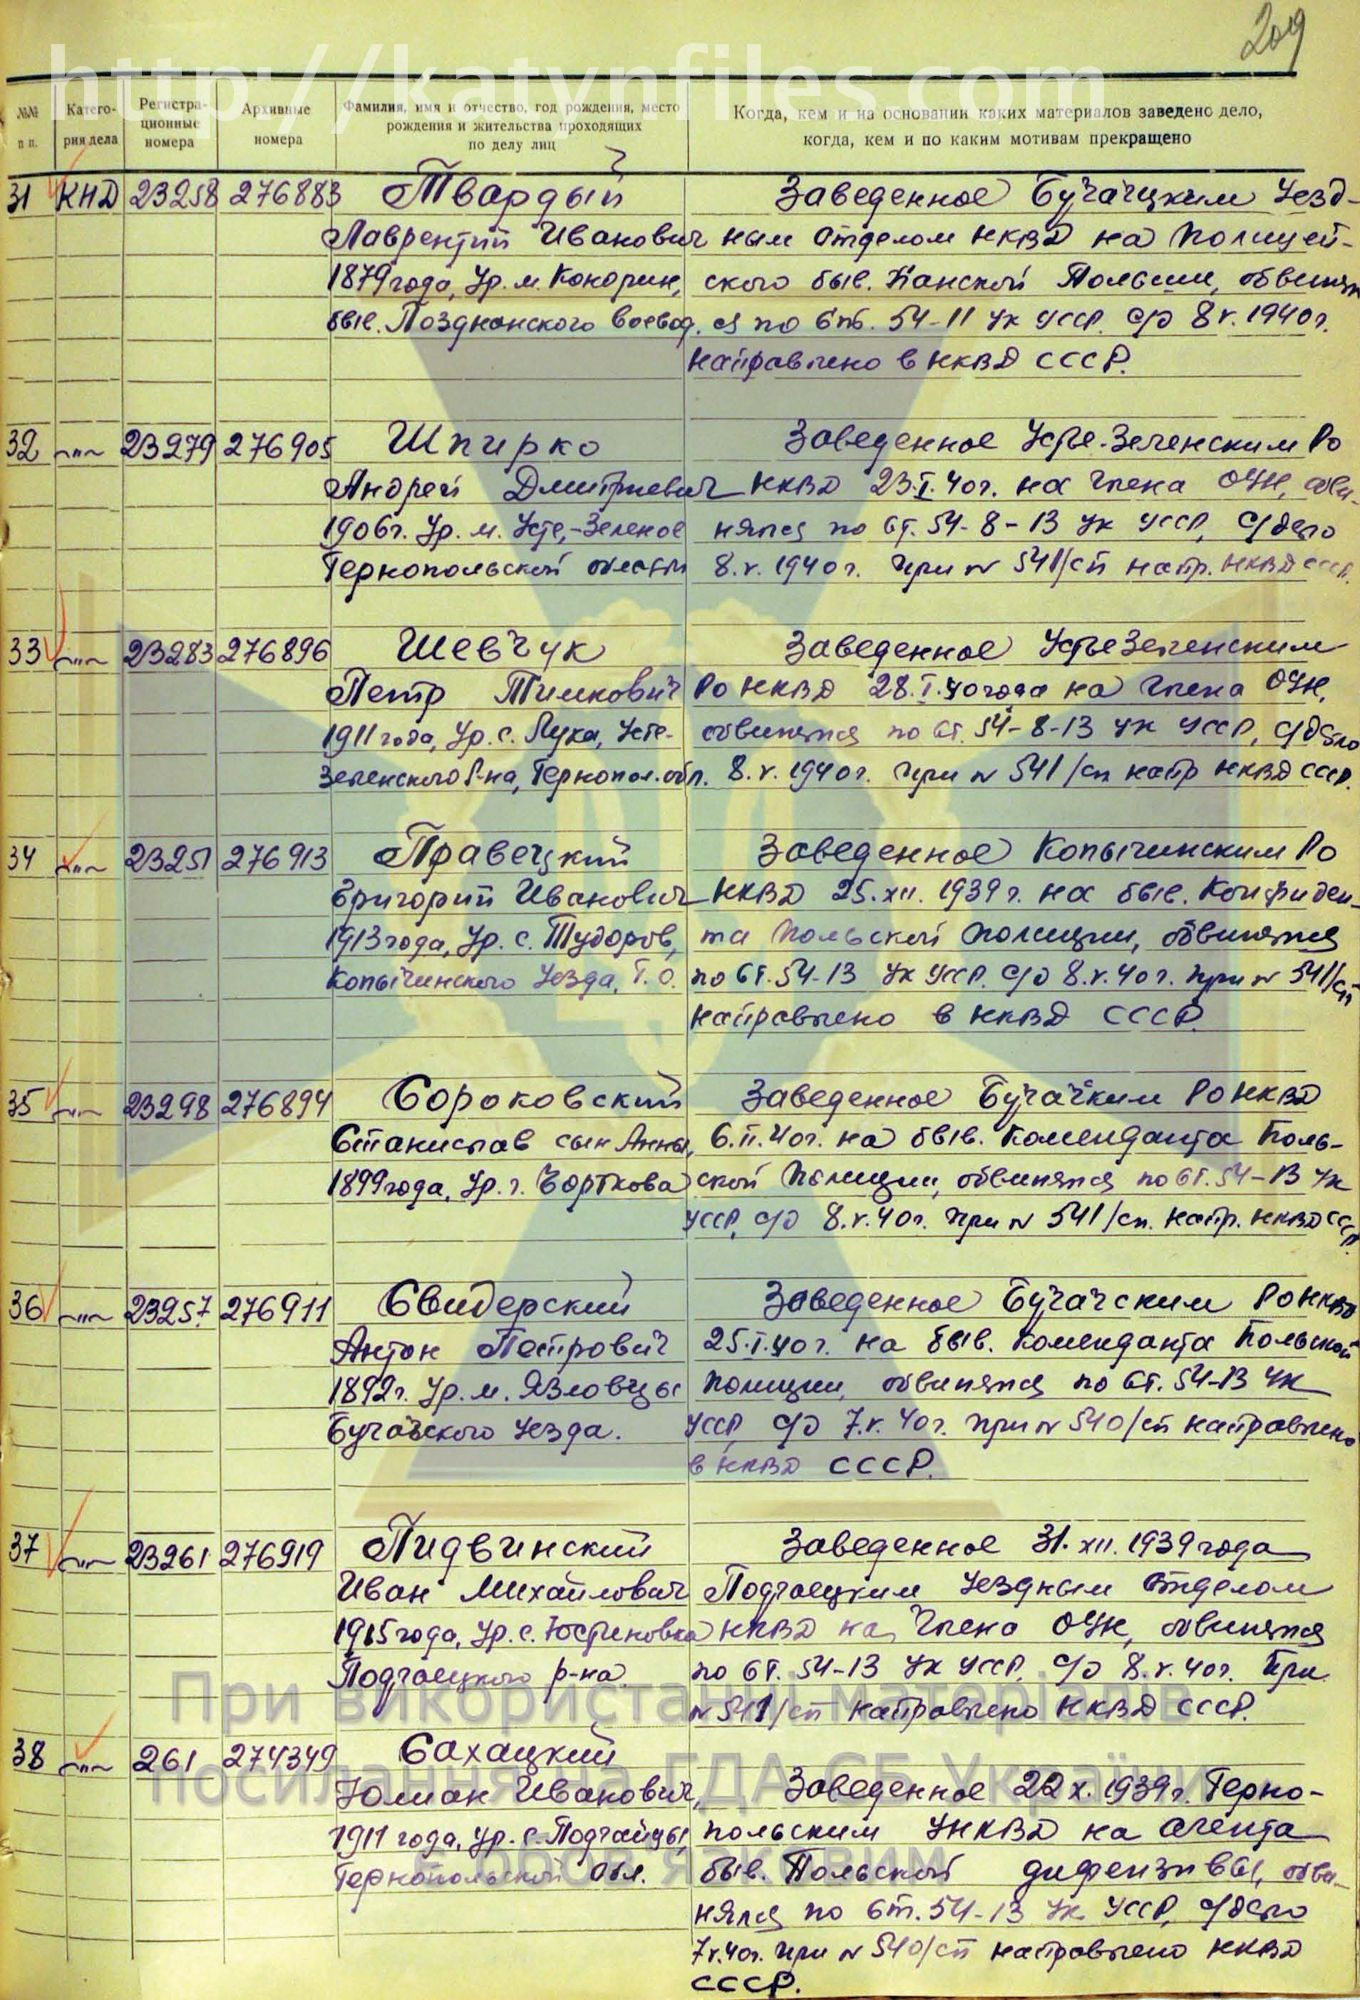 209
http://katynfiles.com
№№ п п.
Катего-
рия дела
Регистра-
ционные
номера
Архивные
номера
Фамилия, имя и отчество, год рождения, место
рождения и жительства проходящих
по делу лиц
Когда, кем и на основании каких материалов заведено дело,
когда, кем и по каким мотивам прекращено
31 КНД 23258 276883 Твардый Заведенное Бучацким Уезд-
Лаврентий Иванович ным отделом НКВД на Полицей-
1879 года, Ур. м. быв. Панской Польши, обвинял
быв. Воевод. ся по Ст. 54-11 УК УССР. С/д 8.V.1940г.
направлено в НКВД СССР.
32 —"— 23279 276905 Шпирко Заведенное Усте-Зеленским РО
Андрей Дмитриевич НКВД 23.I.40г. на члена ОУН, обви-
1906г. Ур. м. Усте-Зеленое нялся по Ст. 54-8-13 УК УССР, С/дело
Тернопольской области 8.V.1940г. При № 541/сп напр. НКВД СССР.
33 —"— 23283 276896 Шевчук Заведенное Усте Зеленским
Петр Тимкович РО НКВД 28.I.40 года на члена ОУН,
1911 года, Ур. с. Лука, Усте- обвинялся по Ст. 54-8-13 УК УССР, С/дело
Зеленского Р-на, Тернопол. обл. 8.V.1940г. При № 541/сп напр НКВД СССР.
34 —"— 23251 276913 Правецкий Заведенное Копычинским РО
Григорий Иванович НКВД 25.XII.1939г. на быв. Конфиден-
1913 года, Ур. с. Тудоров, та Польской полиции, обвинялся
Копычинского Уезда, Т.О. по Ст. 54-13 УК УССР. С/д 8.V.40г. при № 541/сп
направлено в НКВД СССР.
35 —"— 23298 276894 Сороковский Заведенное РО НКВД
Станислав сын Анны, 6.II.40г. на быв. Коменданта Поль-
1899 года, Ур. г. Чорткова ской Полиции, обвинялся по Ст. 54-13 УК
УССР, С/д 8.V.40г. При № 541/сп. напр. НКВД СССР.
36 —"— 23257. 276911 Свидерский Заведенное Бучачским РО НКВД
Антон Петрович 25.I.40г. на быв. Коменданта Польской
1892г. Ур. м. Язловцы полиции, обвинялся по Ст. 54-13 УК
Бучачского Уезда. УССР, С/д 7.V.40г. при № 540/сп направлено
в НКВД СССР.
37 —"— 23261 276919 Пидвинский Заведенное 31.XII.1939 года
Иван Михайлович Подгаецким Уездным Отделом
1915 года, Ур. с. Юстиновка НКВД на члена ОУН, обвинялся
Подгаецкого р-на. по Ст. 54-13 УК УССР. С/д 8.V.40г. При
№ 541/сп направлено НКВД СССР.
38 —"— 261 274349 Сахацкий
Юлиан Иванович, Заведенное 22.X.1939г. Терно-
1911 года, Ур. с. Подгайцы, польским УНКВД на агента
Тернопольской обл. быв. Польской дифензивы, обви-
нялся по Ст. 54-13 УК УССР, С/дело
7.V.40г. при № 540/сп направлено НКВД
СССР.
При використанні матеріалів
посилання на ГДА СБ України
обов'язковим